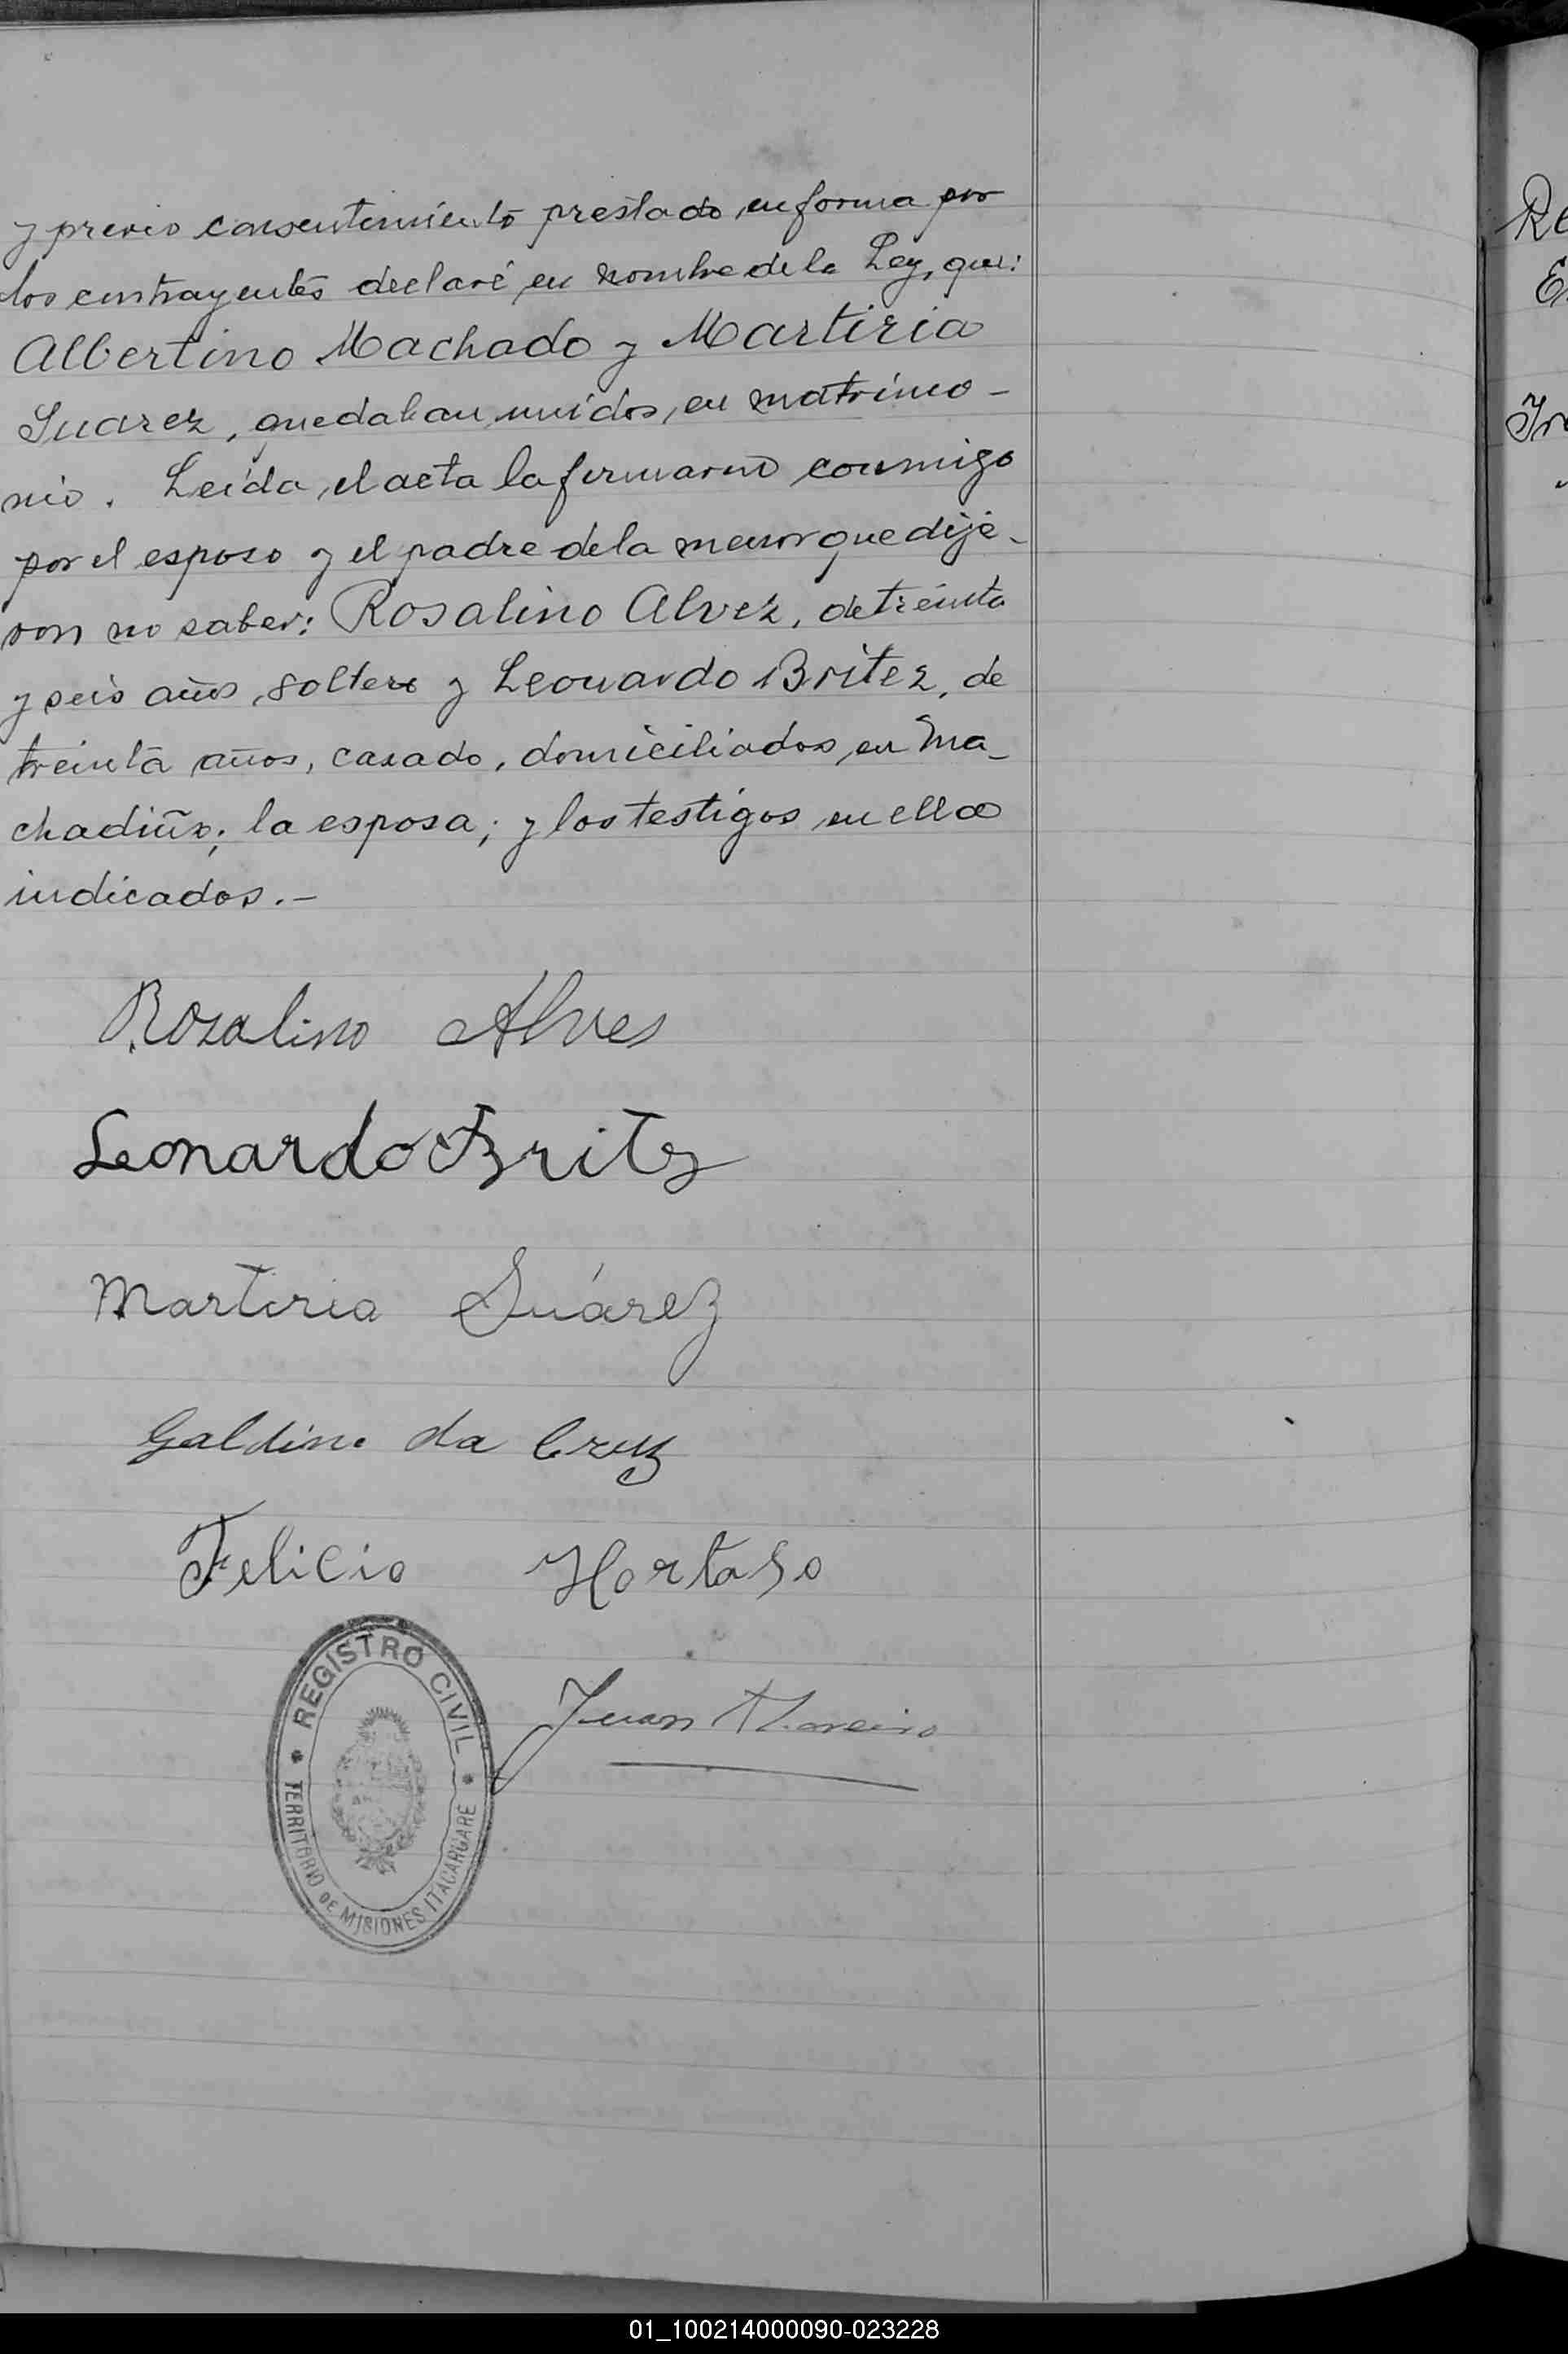 y previo consentimiento prestado en forma por
los contrayentes declaré en nombre de la Ley, que:
Albertino Machado y Martiria
Suarez, quedaban unidos en matrimo-
nio. Leída el acta la firmaron conmigo
por el esposo y el padre de la menor que dije-
ron no saber: Rosalino Alvez, de treinta
y seis años, soltero y Leonardo Britez, de
treinta años, casado, domiciliados en Ma-
chadiño; la esposa; y los testigos en ella
indicados.-
Rozalino Alves
Leonardo Britz
Martiria Suárez
Galdino da Cruz
Felicio Hortaso
REGISTRO CIVIL
TERRITORIO DE MISIONES ITACARUARE
Juan
01_100214000090-023228